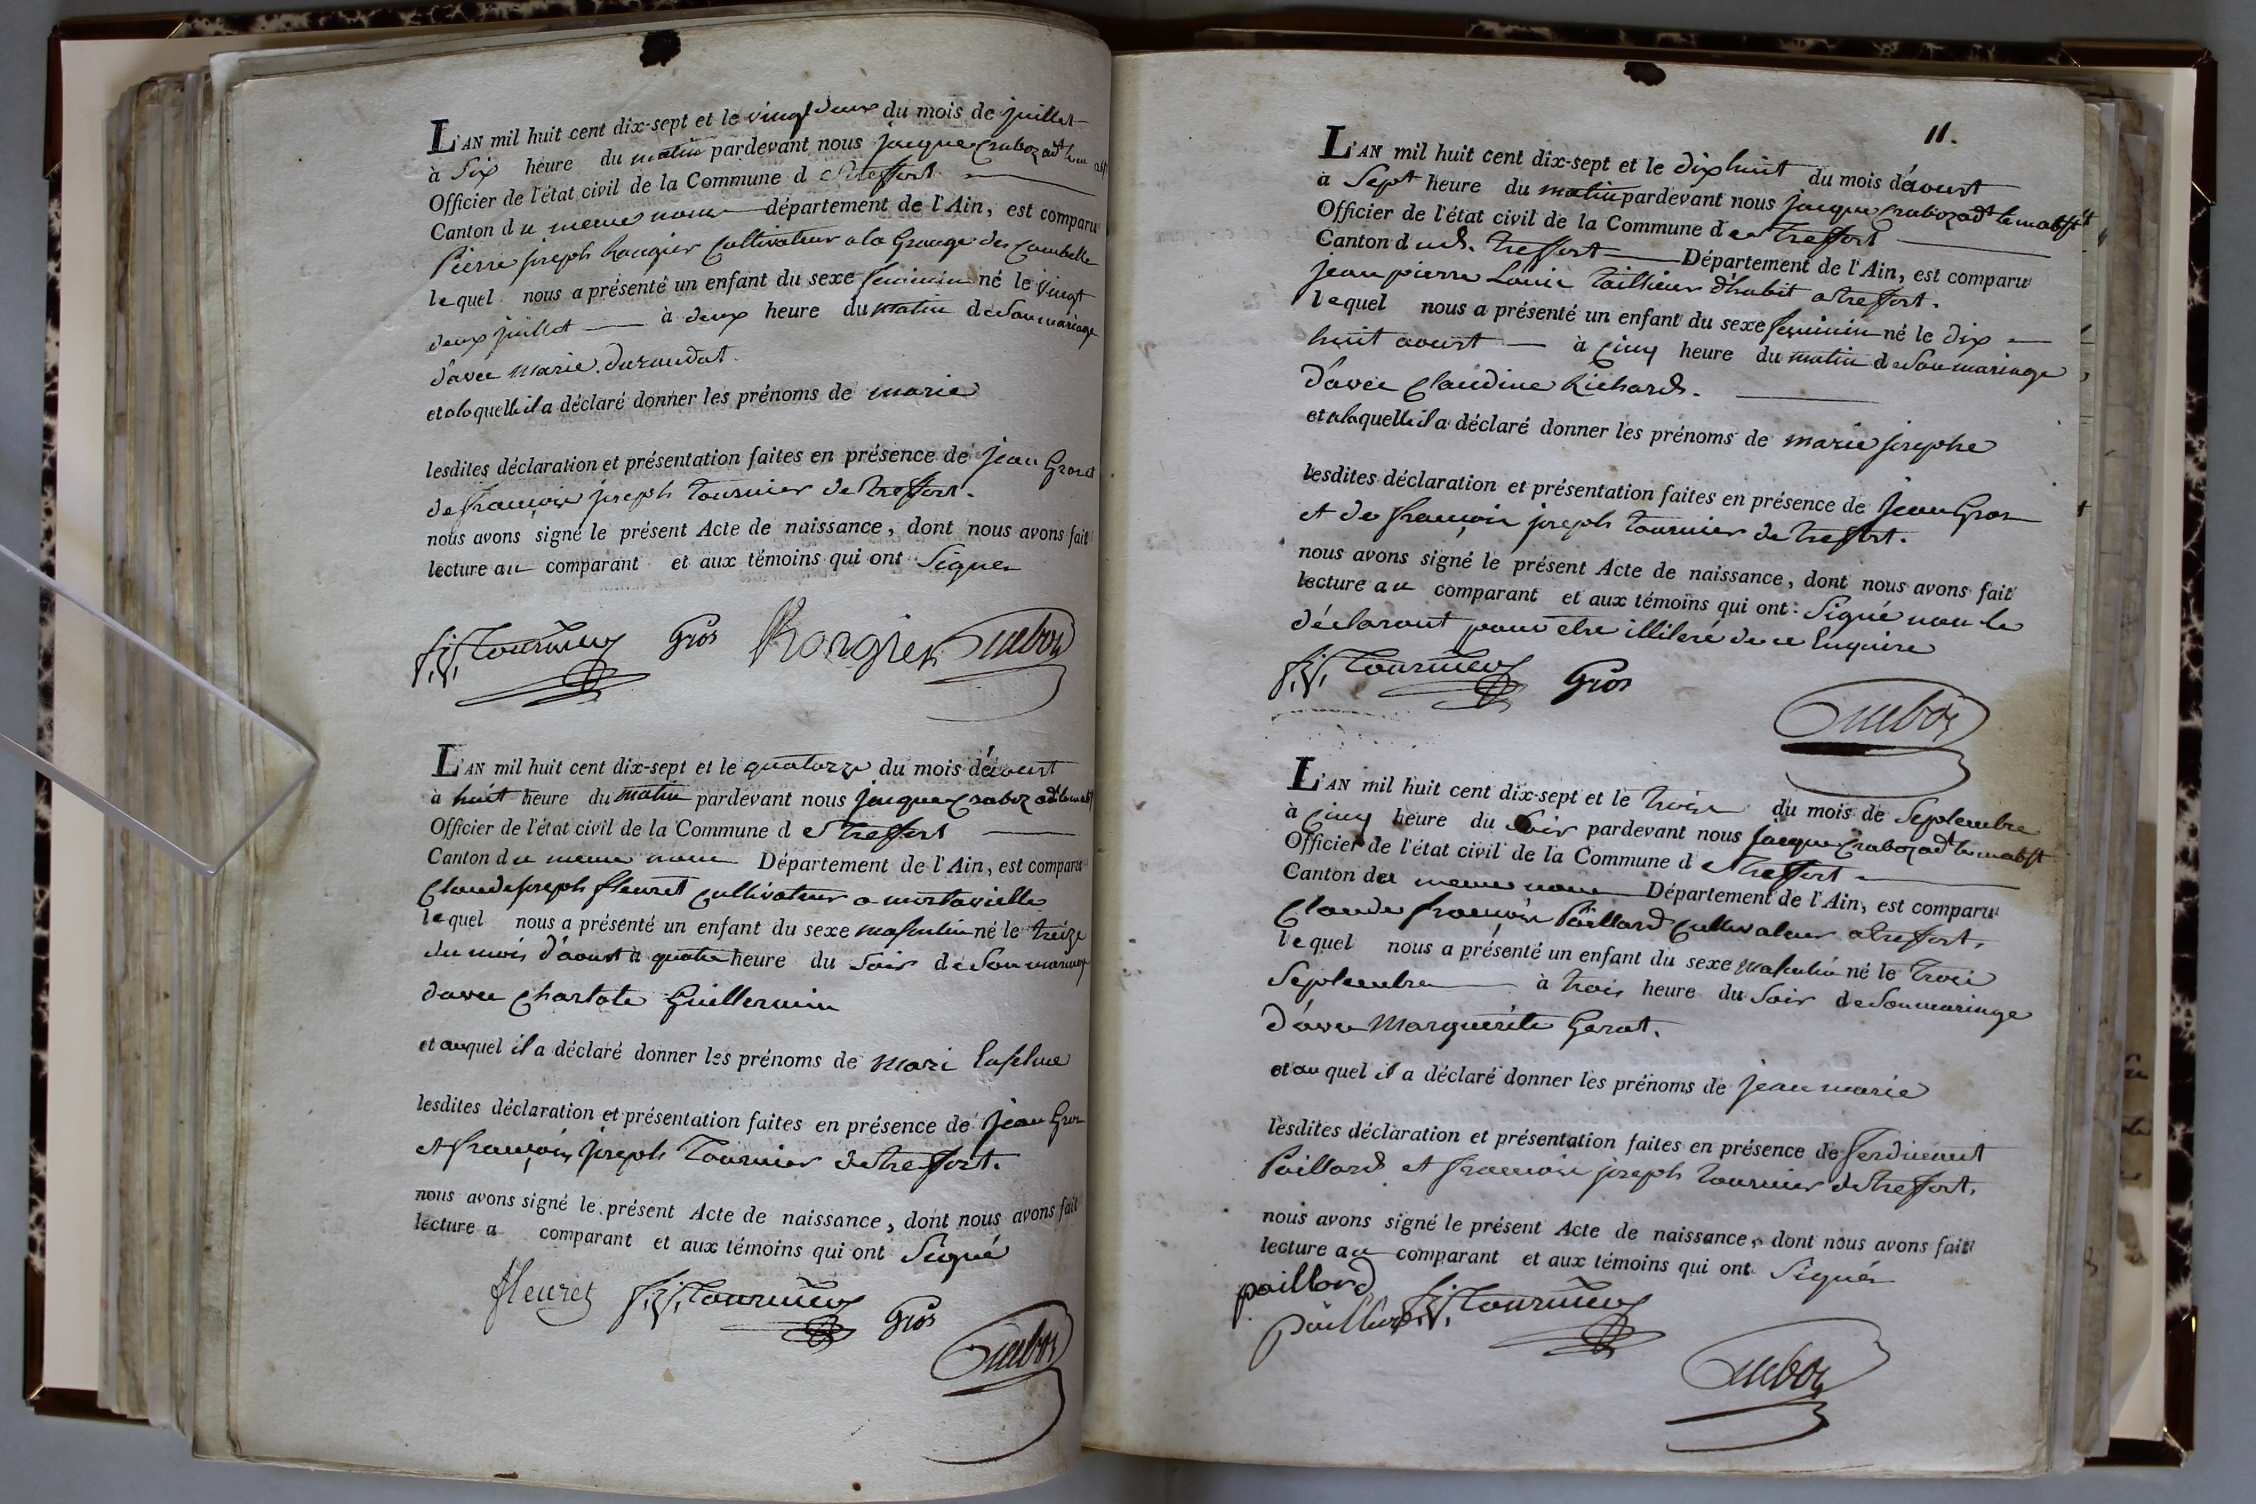 L'AN mil huit cent dix-sept et le vingt deux du mois de juillet
à Six heure du matin pardevant nous jacque
Officier de l'état civil de la Commune d e Treffort
Canton d u meme nom département de l'Ain, est comparu
Pierre joseph Rongier Cultivateur a la Grange des
lequel nous a présenté un enfant du sexe feminin né le vingt
deux juillet à deux heure du matin de Son mariage
d'avec Marie durandat
et a laquelle il a déclaré donner les prénoms de marie
lesdites déclaration et présentation faites en présence de jean Gros et
de françois joseph Tournier de treffort.
nous avons signé le présent Acte de naissance, dont nous avons fait
lecture au comparant et aux témoins qui ont Signer
f. j. Tournier Gros Rongier
L'AN mil huit cent dix-sept et le quatorze du mois d'aoust
à huit heure du matin pardevant nous jacque
Officier de l'état civil de la Commune d e Treffort
Canton d u meme nom Département de l'Ain, est comparu
Claude joseph fleuret Cultivateur a
lequel nous a présenté un enfant du sexe masculin né le treize
du mois d'aoust à quatre heure du Soir de Son mariage
d'avec Charlote Guillermin
et auquel il a déclaré donner les prénoms de Mari
lesdites déclaration et présentation faites en présence de jean Gros
et françois joseph Tournier de treffort.
nous avons signé le présent Acte de naissance, dont nous avons fait
lecture a comparant et aux témoins qui ont Signé
fleuret f. j. Tournier Gros
11.
L'AN mil huit cent dix-sept et le dix huit du mois d'aoust
à Sept heure du matin pardevant nous jacque
Officier de l'état civil de la Commune d e Treffort
Canton d u d. treffort Département de l'Ain, est comparu
jean pierre Louis taillieur d'habit a treffort.
lequel nous a présenté un enfant du sexe feminin né le dix
huit aoust à Cinq heure du matin de Son mariage
d'avec Claudine Richard.
et a laquelle il a déclaré donner les prénoms de marie josephe
lesdites déclaration et présentation faites en présence de jean Gros
et de françois joseph tournier de treffort.
nous avons signé le présent Acte de naissance, dont nous avons fait
lecture au comparant et aux témoins qui ont Signé non le
déclarant pour etre illiteré de ce Enquire
f. j. Tournier Gros
L'AN mil huit cent dix-sept et le trois du mois de Septembre
à Cinq heure du Soir pardevant nous jacque
Officier de l'état civil de la Commune d e Treffort
Canton du meme nom Département de l'Ain, est comparu
Claude françois Paillard Cultivateur a treffort,
lequel nous a présenté un enfant du sexe masculin né le trois
Septembre à trois heure du Soir de Son mariage
d'avec Marguerite Gerat.
et au quel il a déclaré donner les prénoms de jean marie
lesdites déclaration et présentation faites en présence de ferdinent
Paillard et françois joseph tournier de treffort,
nous avons signé le présent Acte de naissance, dont nous avons fait
lecture au comparant et aux témoins qui ont Signés
paillard
paillard f. j. Tournier